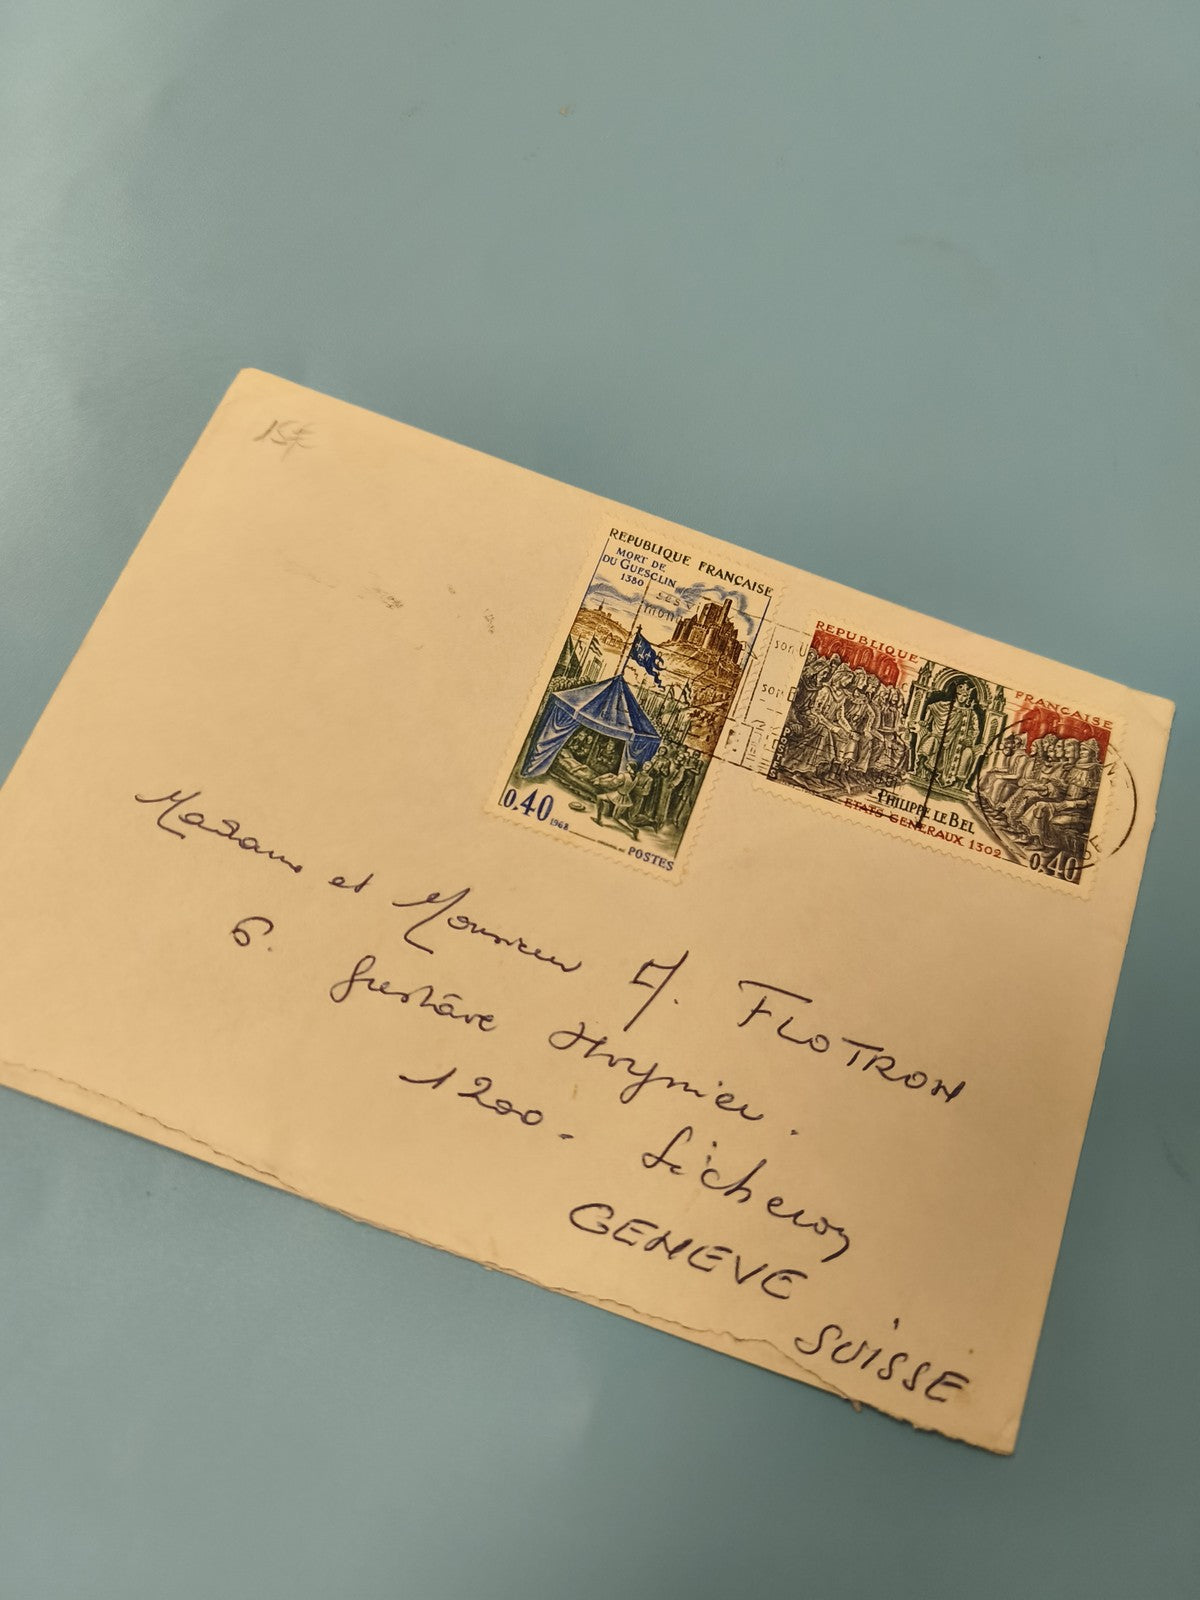 15€
REPUBLIQUE FRANÇAISE
MORT DE
DU GUESCLIN
1380
0,40
1968
POSTES
REPUBLIQUE FRANÇAISE
PHILIPPE LE BEL
ETATS GENERAUX 1302
0,40
Madame et Monsieur A. FLOTRON
6. Gustave Moynier.
1200 - Sécheron
GENEVE
SUISSE